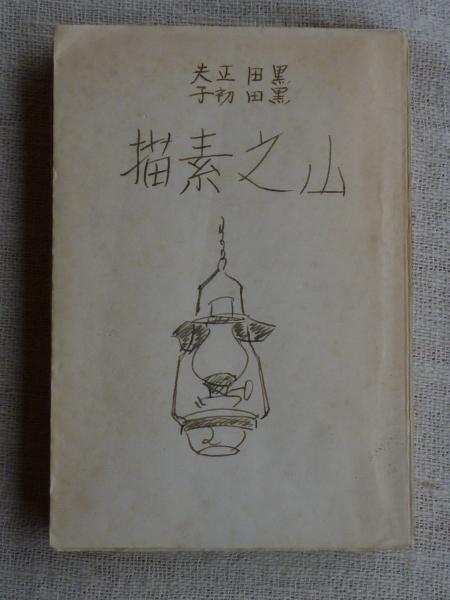 黒田正夫
黒田初子
山之素描